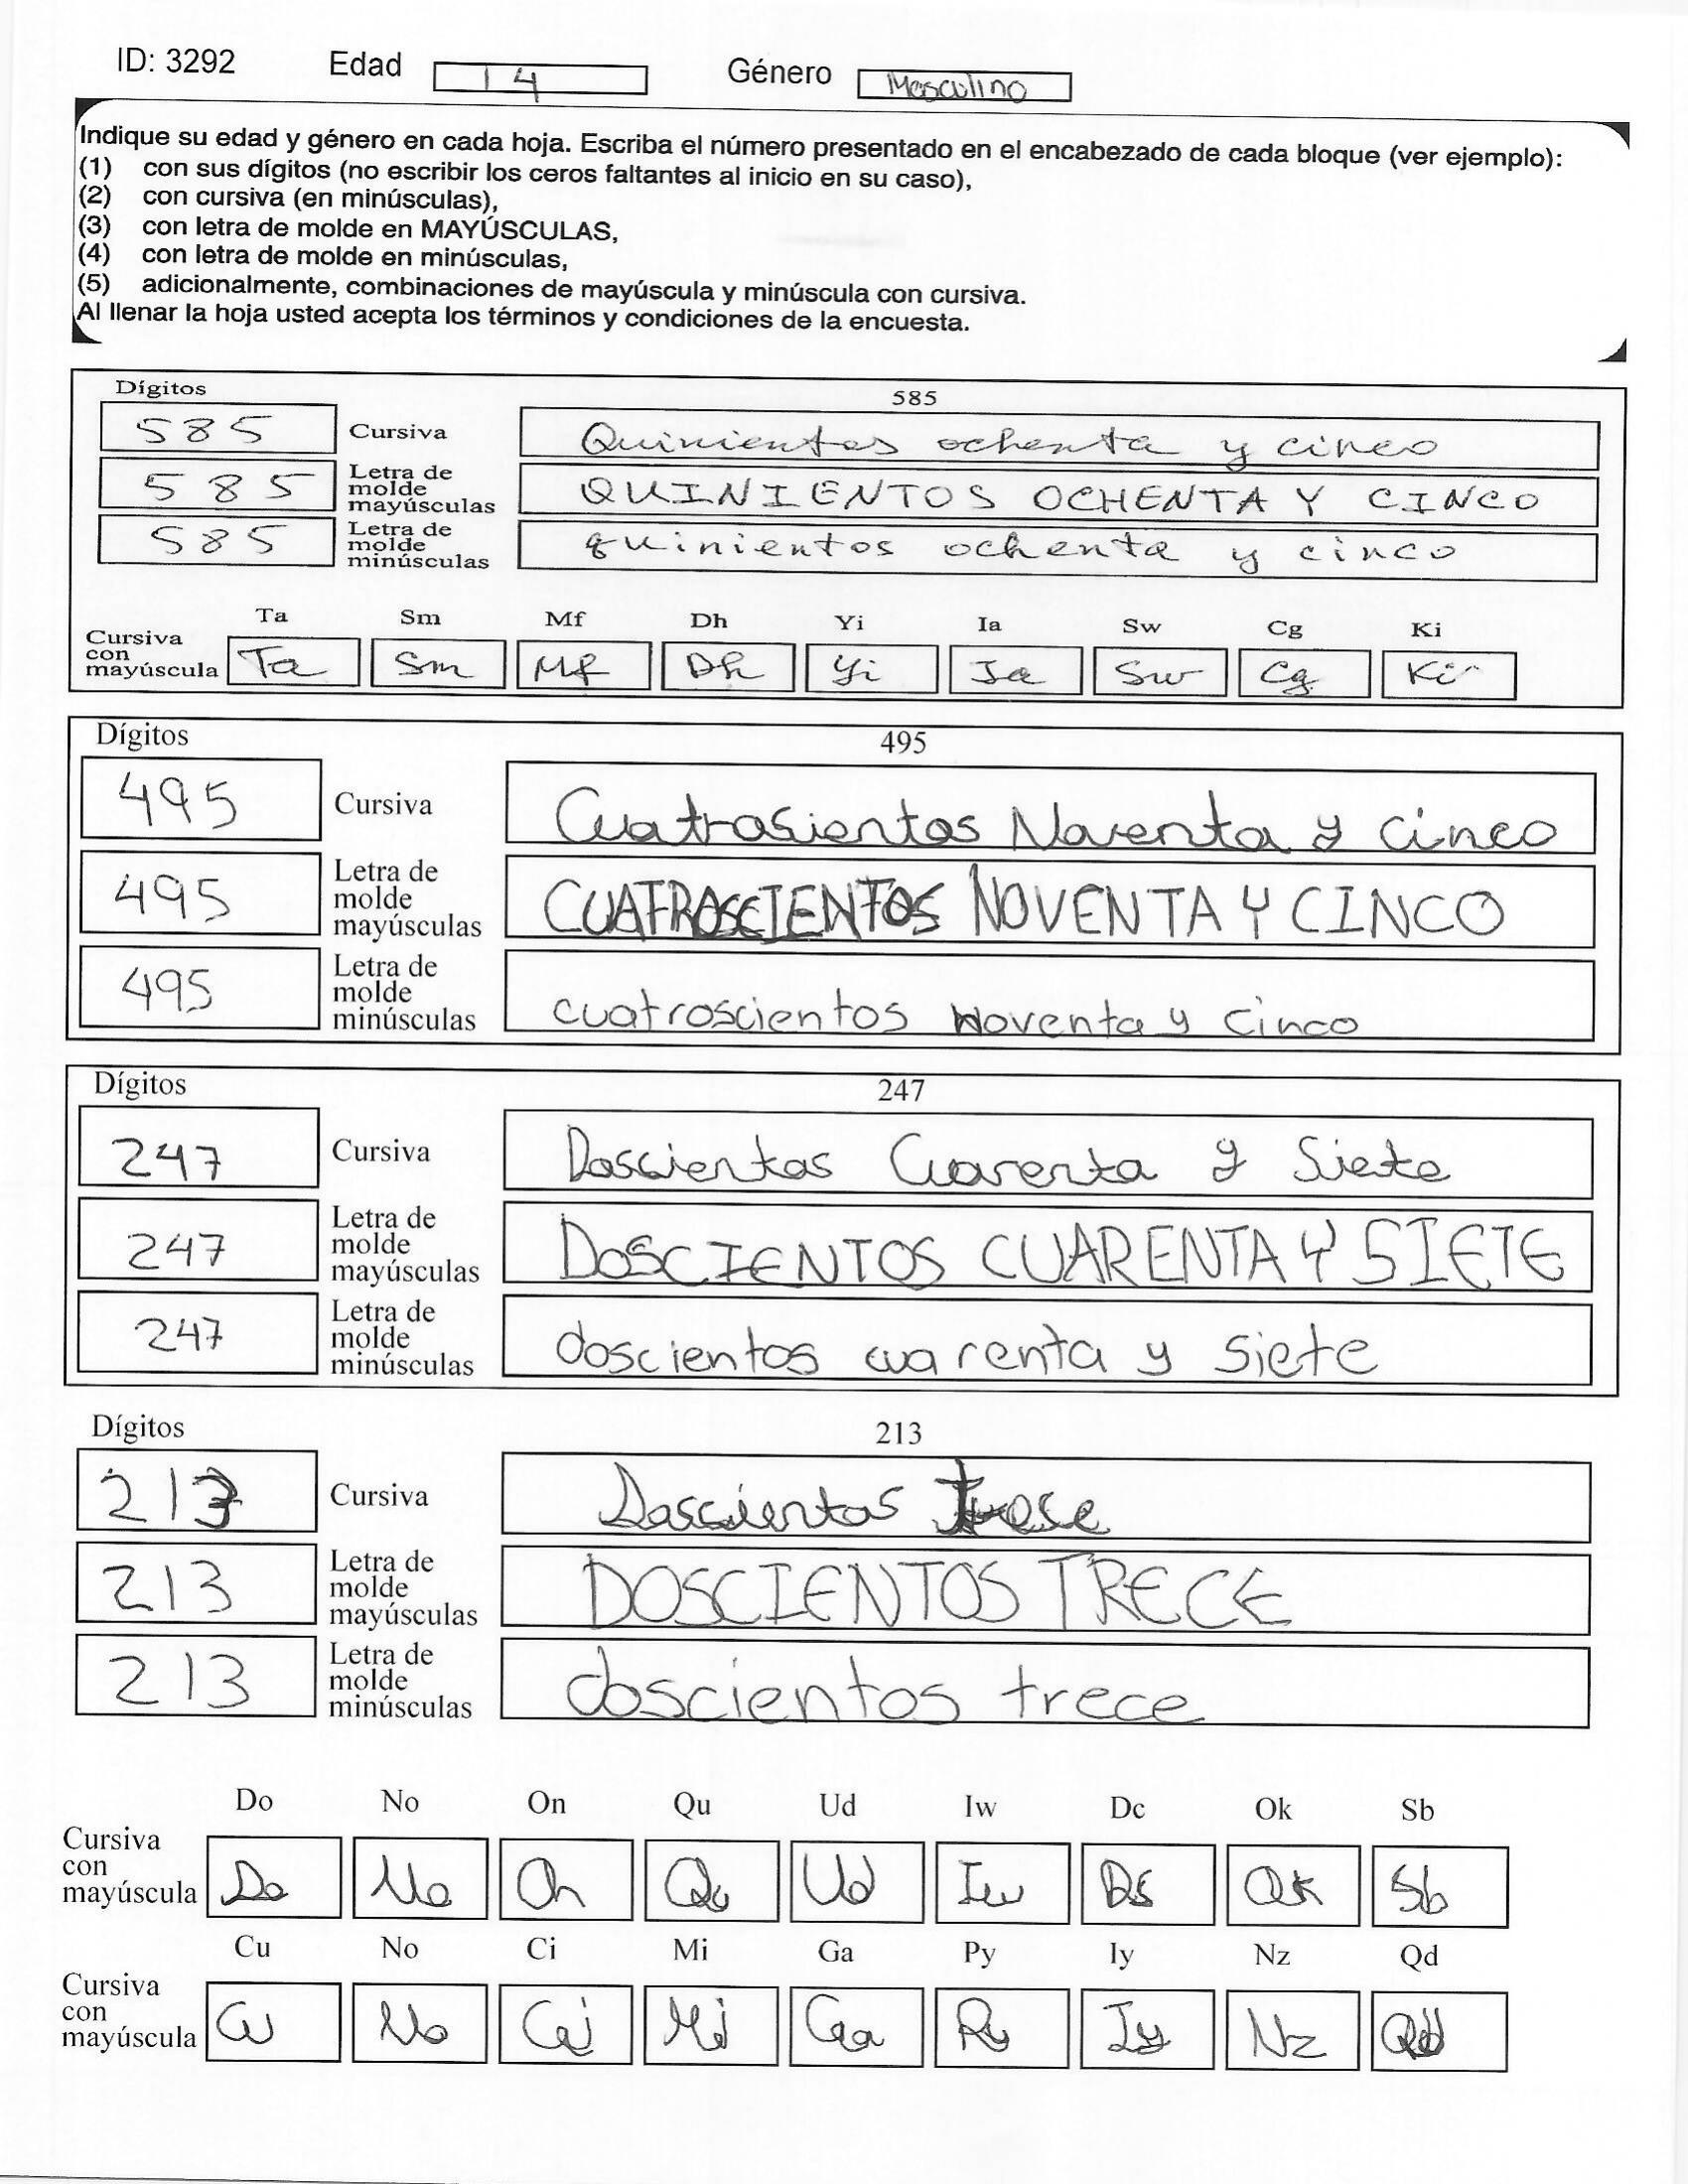 ID: 3292 Edad 14 Género Masculino
Indique su edad y género en cada hoja. Escriba el número presentado en el encabezado de cada bloque (ver ejemplo):
(1) con sus dígitos (no escribir los ceros faltantes al inicio en su caso),
(2) con cursiva (en minúsculas),
(3) con letra de molde en MAYÚSCULAS,
(4) con letra de molde en minúsculas,
(5) adicionalmente, combinaciones de mayúscula y minúscula con cursiva.
Al llenar la hoja usted acepta los términos y condiciones de la encuesta.
Dígitos 585
585 Cursiva Quinientos ochenta y cinco
585 Letra de molde mayúsculas QUINIENTOS OCHENTA Y CINCO
585 Letra de molde minúsculas quinientos ochenta y cinco
Ta Sm Mf Dh Yi Ia Sw Cg Ki
Cursiva con mayúscula Ta Sm Mf Dh Yi Ia Sw Cg Ki
Dígitos 495
495 Cursiva Cuatrosientos Noventa y cinco
495 Letra de molde mayúsculas CUATROSCIENTOS NOVENTA Y CINCO
495 Letra de molde minúsculas cuatroscientos noventa y cinco
Dígitos 247
247 Cursiva Doscientos Cuarenta y Siete
247 Letra de molde mayúsculas DOSCIENTOS CUARENTA Y SIETE
247 Letra de molde minúsculas doscientos cuarenta y siete
Dígitos 213
213 Cursiva Doscientos trese
213 Letra de molde mayúsculas DOSCIENTOS TRECE
213 Letra de molde minúsculas doscientos trece
Do No On Qu Ud Iw Dc Ok Sb
Cursiva con mayúscula Do No On Qu Ud Iw Ds Ok Sb
Cu No Ci Mi Ga Py Iy Nz Qd
Cursiva con mayúscula Cu No Ci Mi Ga Py Iy Nz Qd